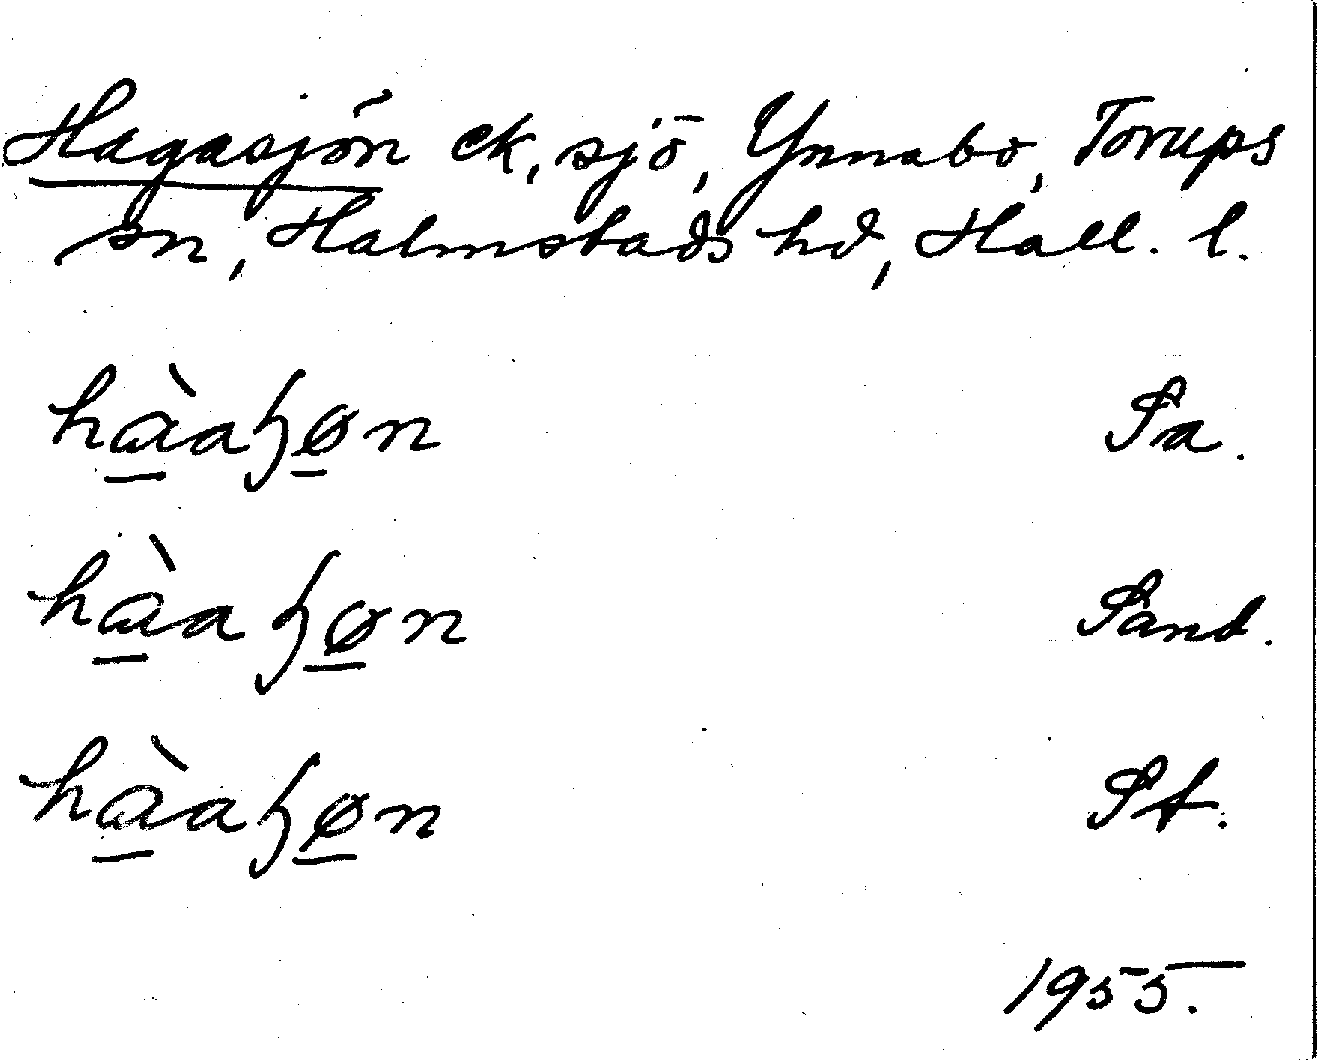 Hagasjön ek, sjö, Ynnabo, Torups
sn, Halmstads hd, Hall. l.
hàaꞕøn Sa.
hàaꞕøn Sand.
hàaꞕøn St.
1955.